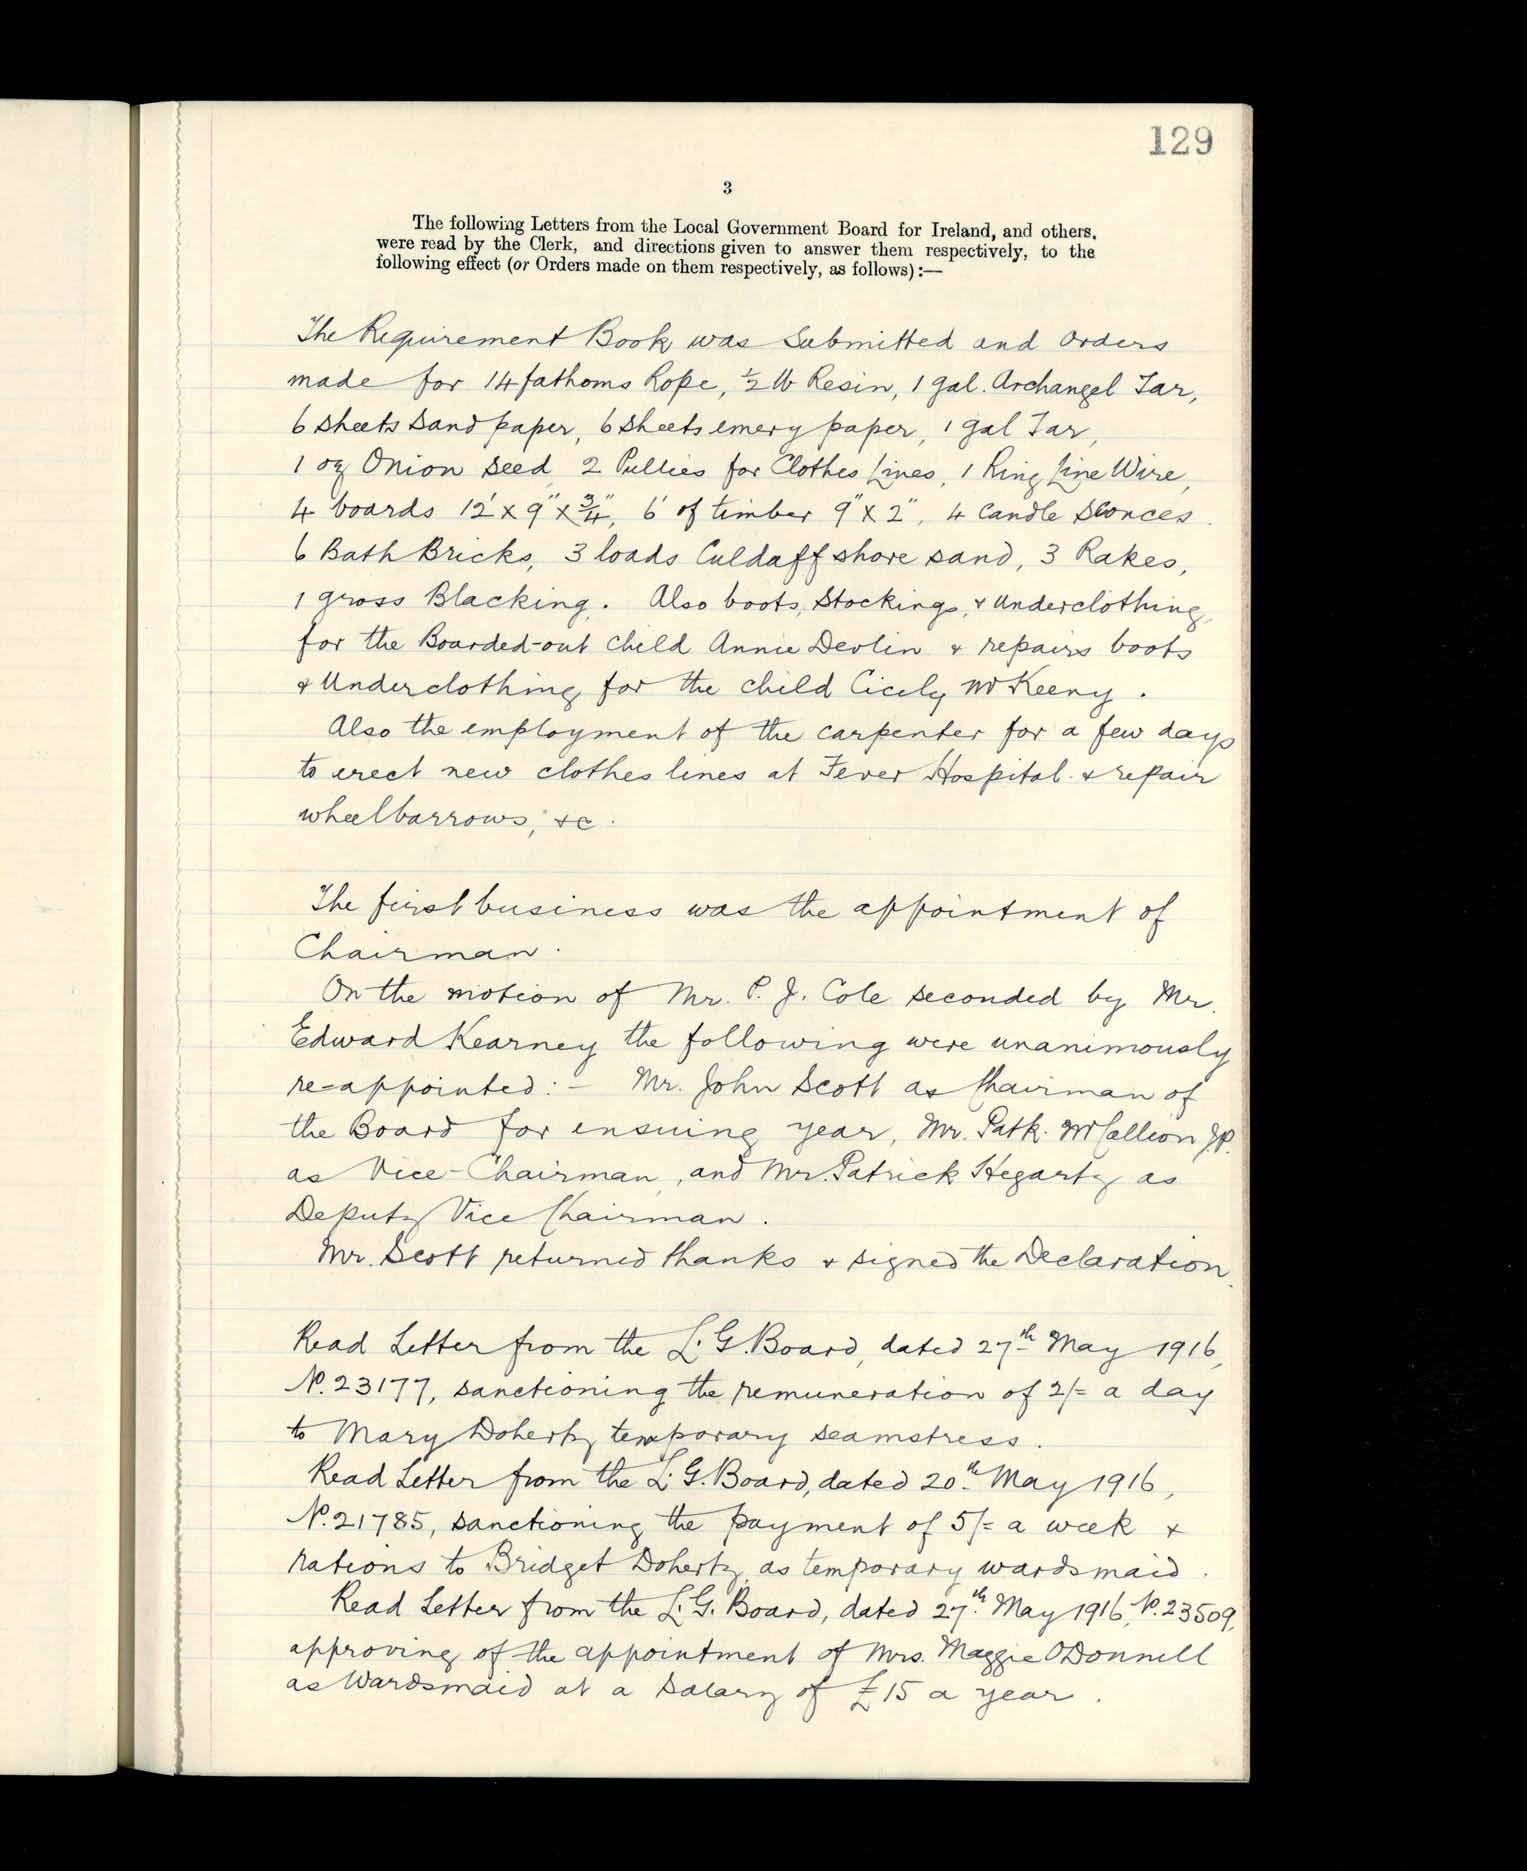 129
3
The following Letters from the Local Government Board for Ireland, and others,
were read by the Clerk, and directions given to answer them respectively, to the
following effect (or Orders made on them respectively, as follows) :—
The Requirement Book was Submitted and orders
made for 14 fathoms Rope, ½ lb Resin, 1 gal. Archangel Tar,
6 sheets sand paper, 6 sheets emery paper, 1 gal Tar,
1 oz Onion seed, 2 Pullies for Clothes Lines, 1 Ring Line Wire,
4 boards 12' x 9" x ¾", 6' of timber 9" x 2", 4 candle sconces.
6 Bath Bricks, 3 loads Culdaff shore sand, 3 Rakes,
1 gross Blacking. Also boots, Stockings, & Underclothing,
for the Boarded-out child Annie Devlin & repairs boots
& Underclothing for the child Cicely McKeeny.
Also the employment of the carpenter for a few days
to erect new clothes lines at Fever Hospital & repair
wheelbarrows, &c.
The first business was the appointment of
Chairman.
On the motion of Mr. P. J. Cole seconded by Mr.
Edward Kearney the following were unanimously
re=appointed: - Mr. John Scott as Chairman of
the Board for ensuing year, Mr. Patk. McCallion J.P.
as Vice-Chairman, and Mr. Patrick Hegarty as
Deputy Vice Chairman.
Mr. Scott returned thanks & signed the Declaration.
Read Letter from the L. G. Board, dated 27th May 1916,
No. 23177, sanctioning the remuneration of 2/= a day
to Mary Doherty temporary seamstress.
Read Letter from the L. G. Board, dated 20th May 1916,
No. 21785, sanctioning the payment of 5/= a week &
rations to Bridget Doherty as temporary wardsmaid.
Read Letter from the L. G. Board, dated 27th May 1916, No. 23509,
approving of the appointment of Mrs. Maggie O'Donnell
as Wardsmaid at a salary of £15 a year.